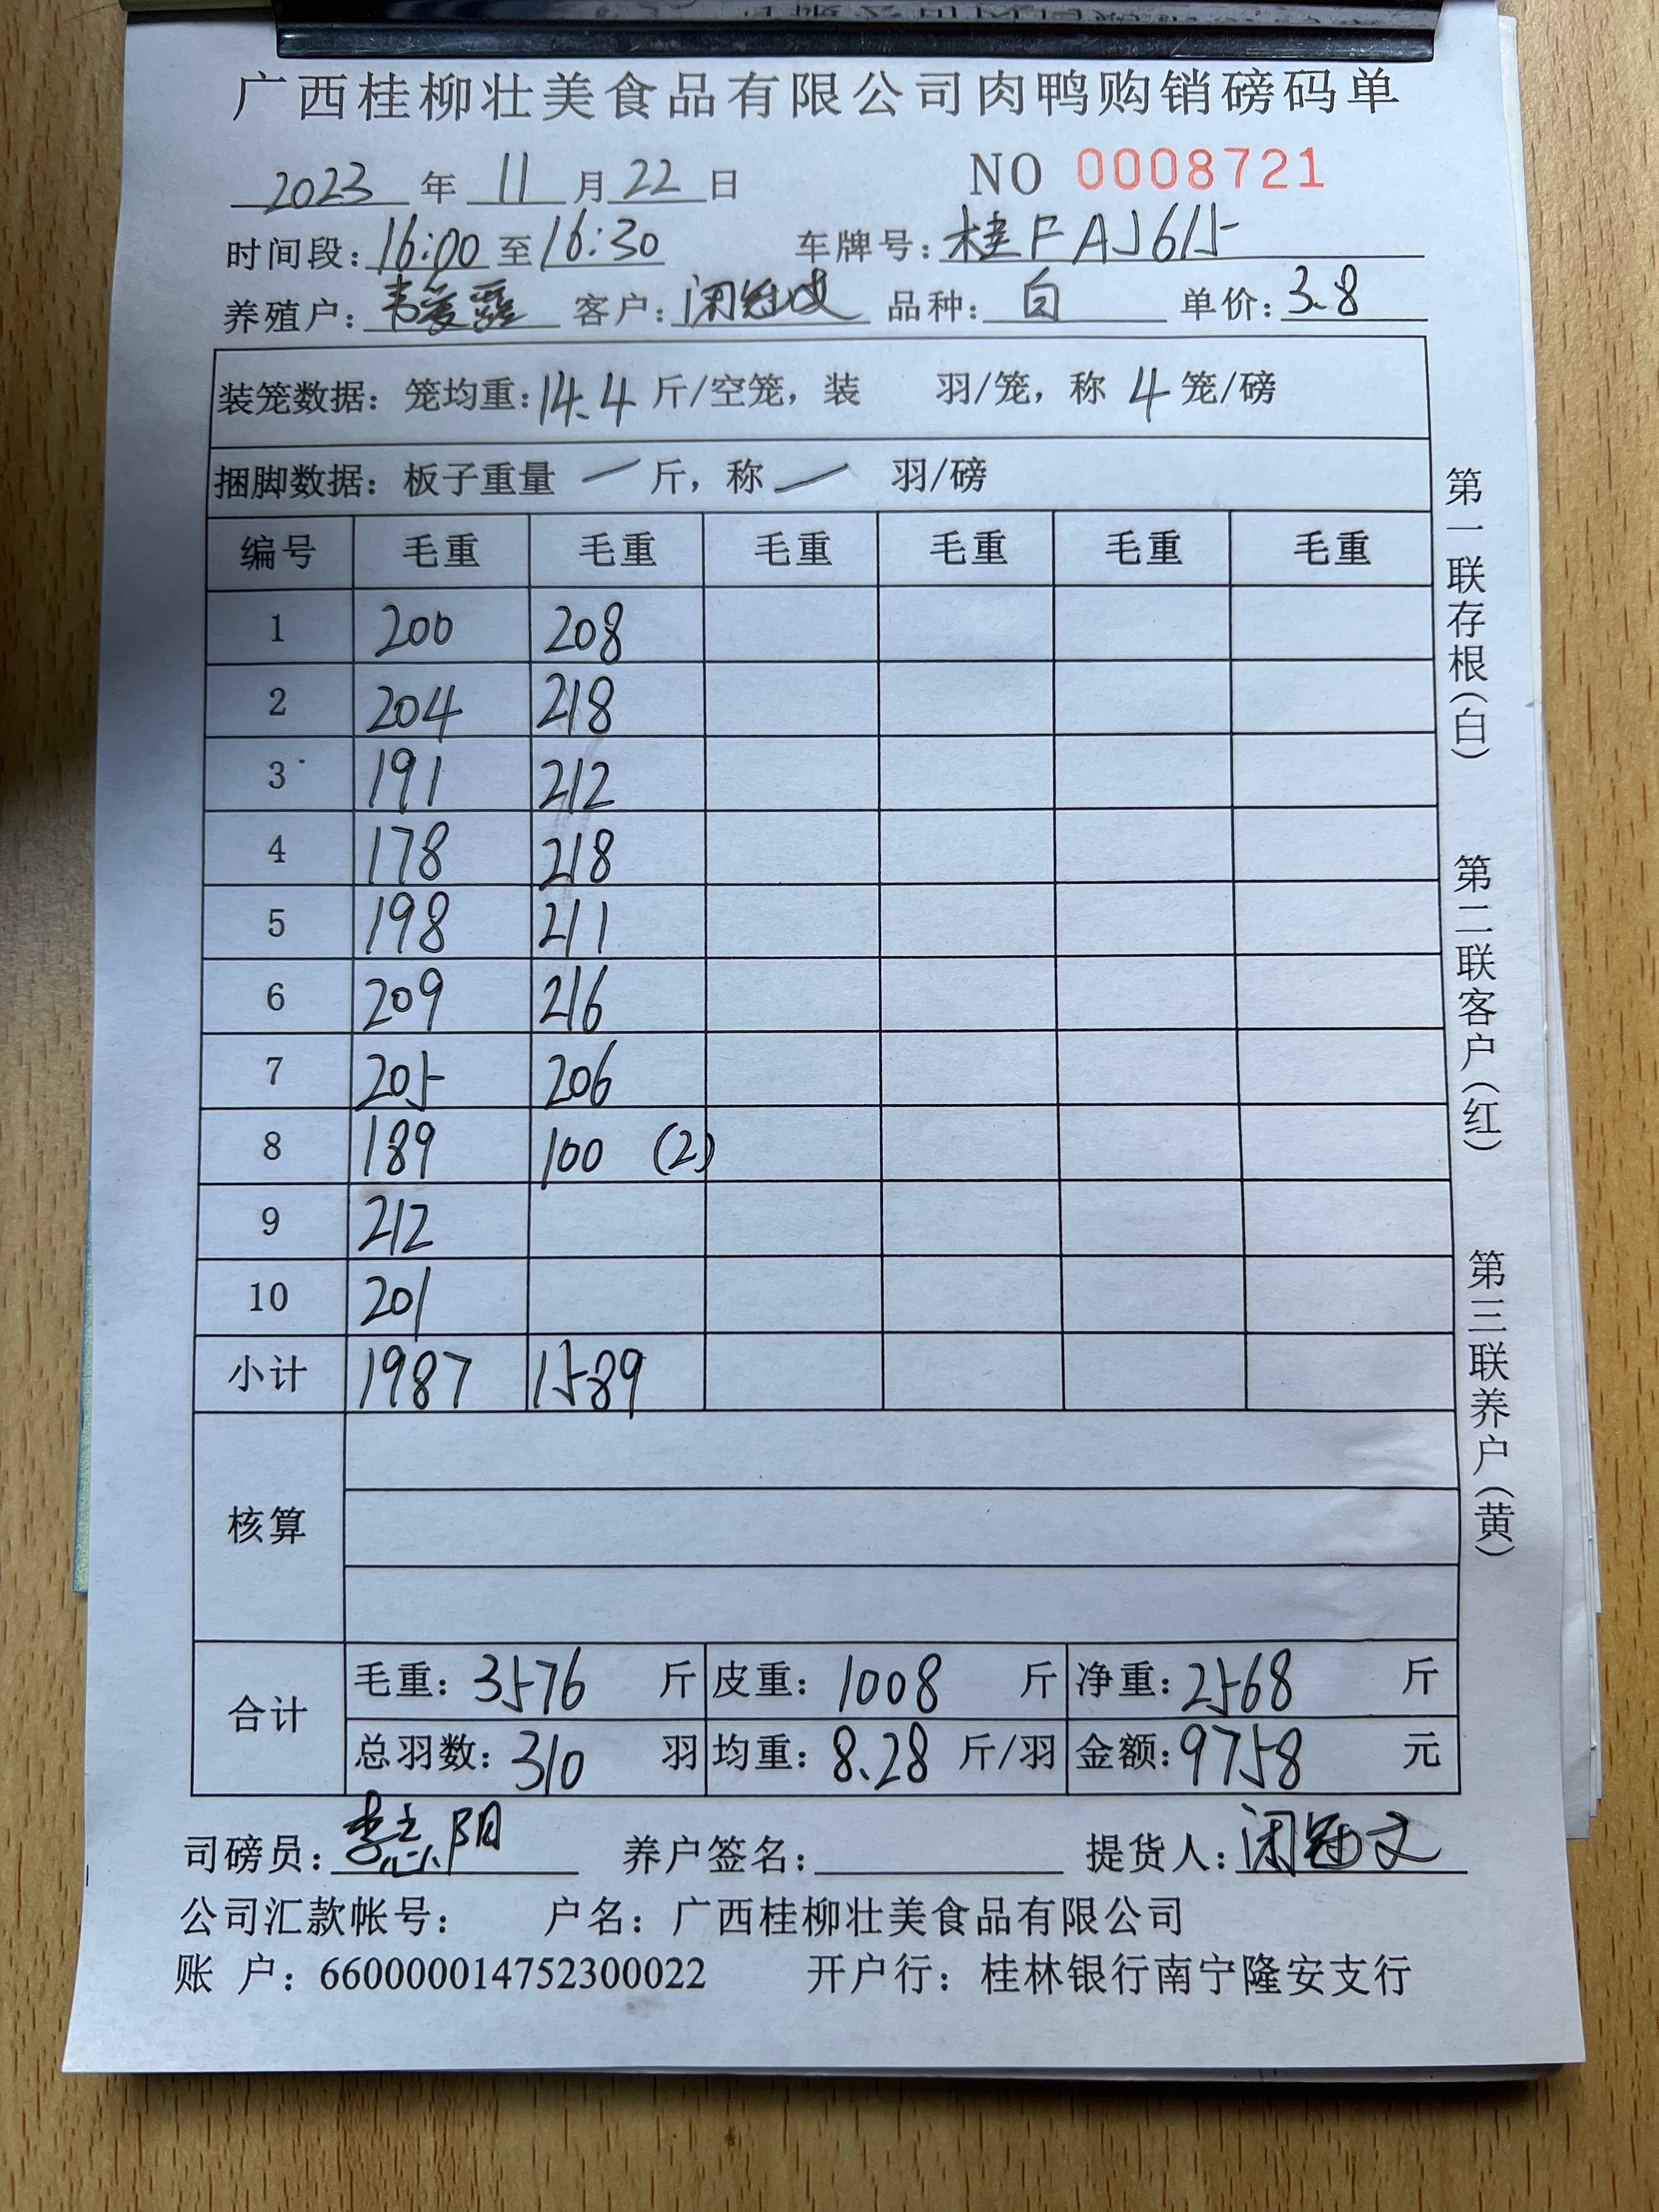 广西桂柳壮美食品有限公司肉鸭购销磅码单
2023 年 11 月 22 日 NO 0008721
时间段：16:00 至 16:30 车牌号：桂FAJ615
养殖户：韦爱 客户：闭冠文 品种：白 单价：3.8
装笼数据：笼均重：14.4 斤/空笼，装 羽/笼，称 4 笼/磅
捆脚数据：板子重量 — 斤，称 — 羽/磅
编号 毛重 毛重 毛重 毛重 毛重 毛重
1 200 208
2 204 218
3 191 212
4 178 218
5 198 211
6 209 216
7 205 206
8 189 100 (2)
9 212
10 201
小计 1987 1589
核算
合计 毛重：3576 斤 皮重：1008 斤 净重：2568 斤
总羽数：310 羽 均重：8.28 斤/羽 金额：9758 元
司磅员：李志阳 养户签名： 提货人：闭冠文
公司汇款帐号： 户名：广西桂柳壮美食品有限公司
账 户：660000014752300022 开户行：桂林银行南宁隆安支行
第一联存根（白）
第二联客户（红）
第三联养户（黄）